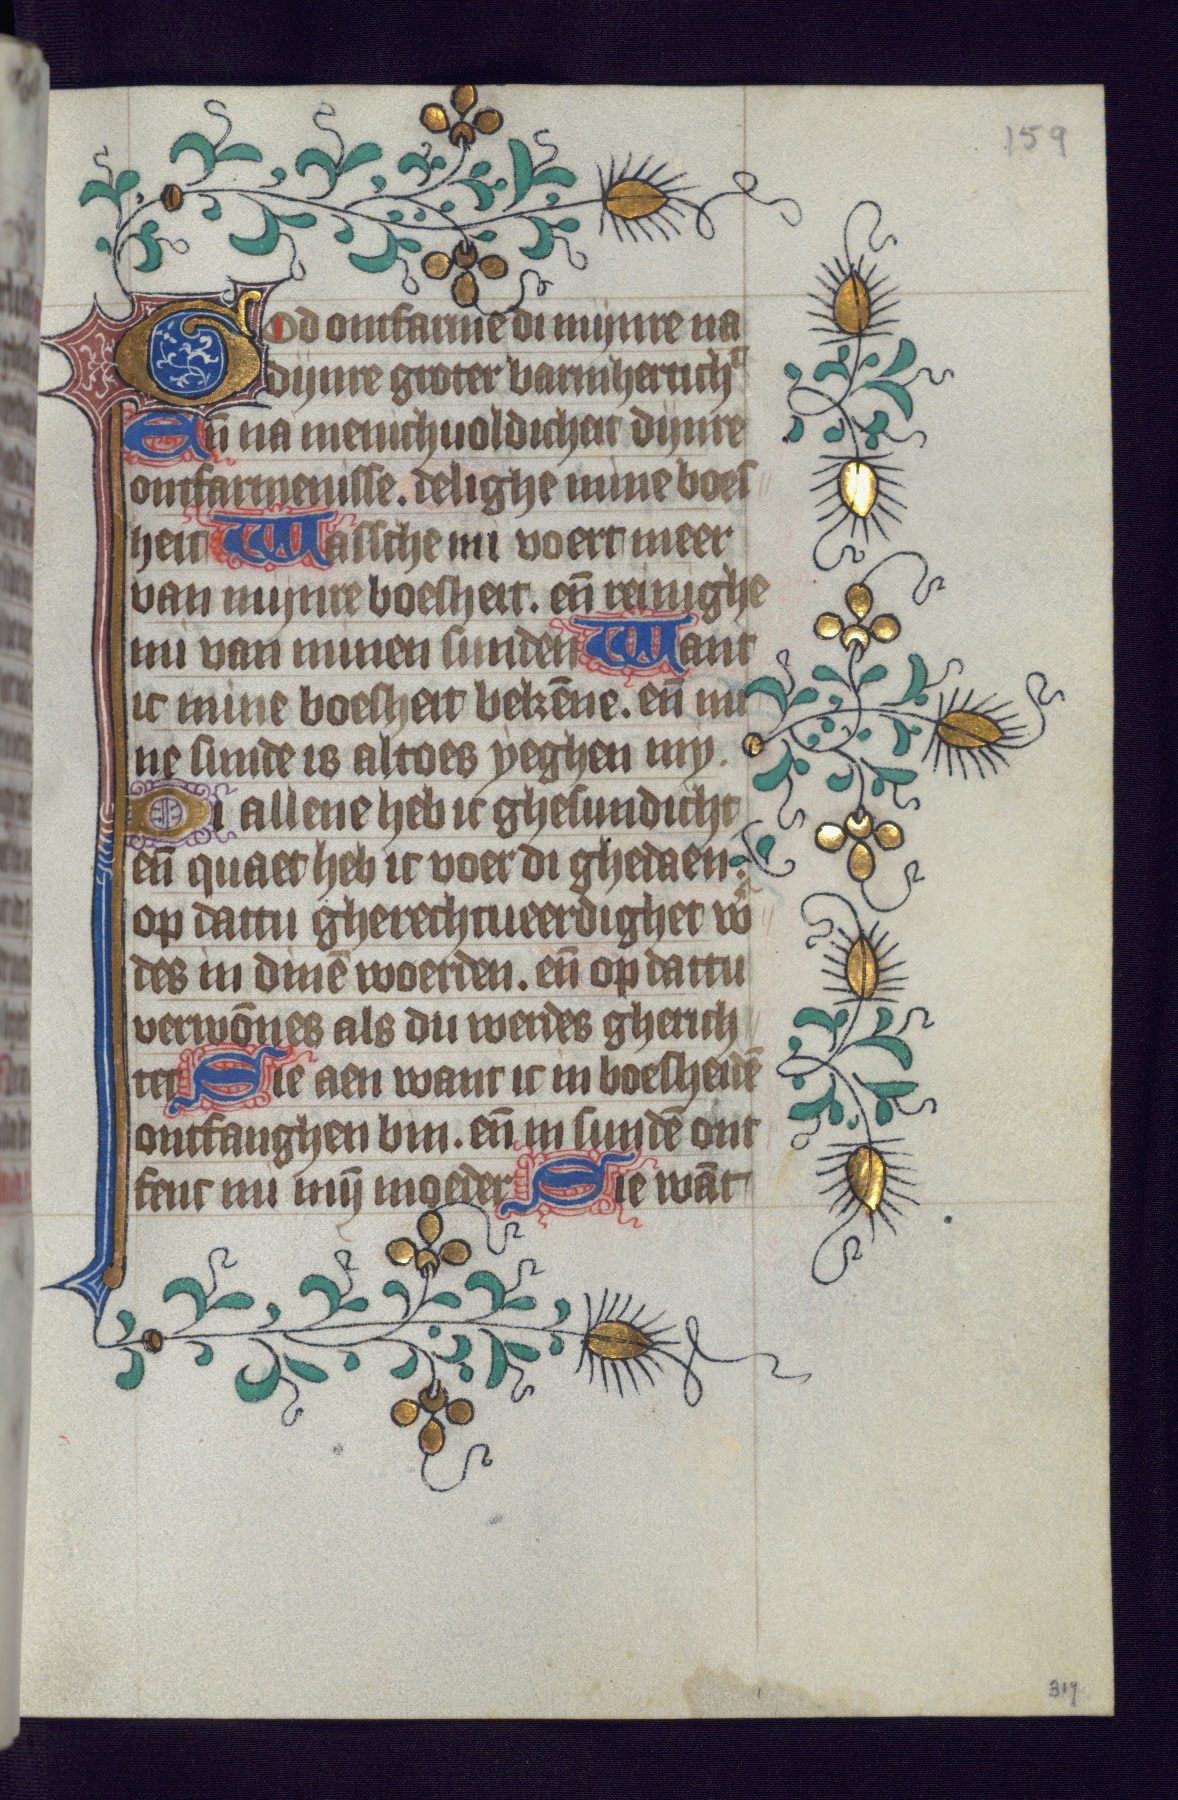 159
God ontfarme di mijnre na
dijnre groter barmherticht
En̄ na menichuoldicheit dijnre
ontfarmenisse. delighe mine boes
heit Wassche mi voert meer
van mijnre boesheit. en̄ reinighe
mi van minen sunden Want
ic mine boesheit bekēne. en̄ mi
ne sunde is altoes yeghen my.
Di allene heb ic ghesundicht
en̄ quaet heb ic voer di ghedaen.
op dattu gherechtueerdighet w̄
des in dinē woerden. en̄ op dattu
verwōnes als du werdes gherich
tet Sie aen want ic in boesheidē
ontfanghen bin. en̄ in sundē ont
fenc mi mӯ moeder Sie wāt
317